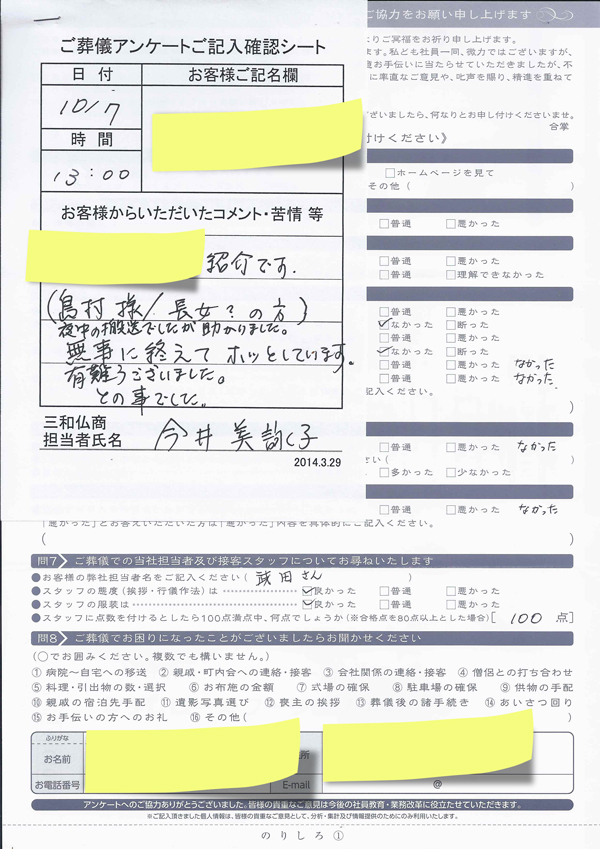 ご葬儀アンケートご記入確認シート
日付
お客様ご記名欄
10/7
時間
13:00
お客様からいただいたコメント・苦情 等
紹介です.
(島村様/長女?の方)
夜中の搬送でしたが助かりました。
無事に終えてホッとしています。
有難うございました。
との事でした。
三和仏商
担当者氏名 今井美
2014.3.29
ご協力をお願い申し上げます
ご冥福をお祈り申し上げます。
ます。私ども社員一同、微力ではございますが、
お手伝いに当たらせていただきましたが、不
に率直なご意見や、叱声を賜り、精進を重ねて
ございましたら、何なりとお申し付けくださいませ。
合掌
付けください》
□ホームページを見て
その他( )
□普通 □悪かった
□普通 □悪かった
□普通 □理解できなかった
□普通 □悪かった
☑なかった □断った
□普通 □悪かった
☑なかった □断った
□普通 □悪かった なかった
□普通 □悪かった なかった
記入ください。
)
□普通 □悪かった なかった
さい( )
□多かった □少なかった
□普通 □悪かった なかった
「悪かった」とお答えいただいた方は「悪かった」内容を具体的にご記入ください。
( )
問7 ご葬儀での当社担当者及び接客スタッフについてお尋ねいたします
●お客様の弊社担当者名をご記入ください( 武田さん )
●スタッフの態度(挨拶・行儀作法)は ☑良かった □普通 □悪かった
●スタッフの服装は ☑良かった □普通 □悪かった
●スタッフに点数を付けるとしたら100点満点中、何点でしょうか(※合格点を80点以上とした場合)[ 100 点]
問8 ご葬儀でお困りになったことがございましたらお聞かせください
(○でお囲みください。複数でも構いません。)
①病院~自宅への移送 ②親戚・町内会への連絡・接客 ③会社関係の連絡・接客 ④僧侶との打ち合わせ
⑤料理・引出物の数・選択 ⑥お布施の金額 ⑦式場の確保 ⑧駐車場の確保 ⑨供物の手配
⑩親戚の宿泊先手配 ⑪遺影写真選び ⑫喪主の挨拶 ⑬葬儀後の諸手続き ⑭あいさつ回り
⑮お手伝いの方へのお礼 ⑯その他( )
ふりがな
お名前
所
お電話番号
E-mail @
アンケートへのご協力ありがとうございました。皆様の貴重なご意見は今後の社員教育・業務改革に役立たせていただきます。
※ご記入頂きました個人情報は、皆様の貴重なご意見として、分析・集計及び情報提供のためにのみ利用いたします。
のりしろ①